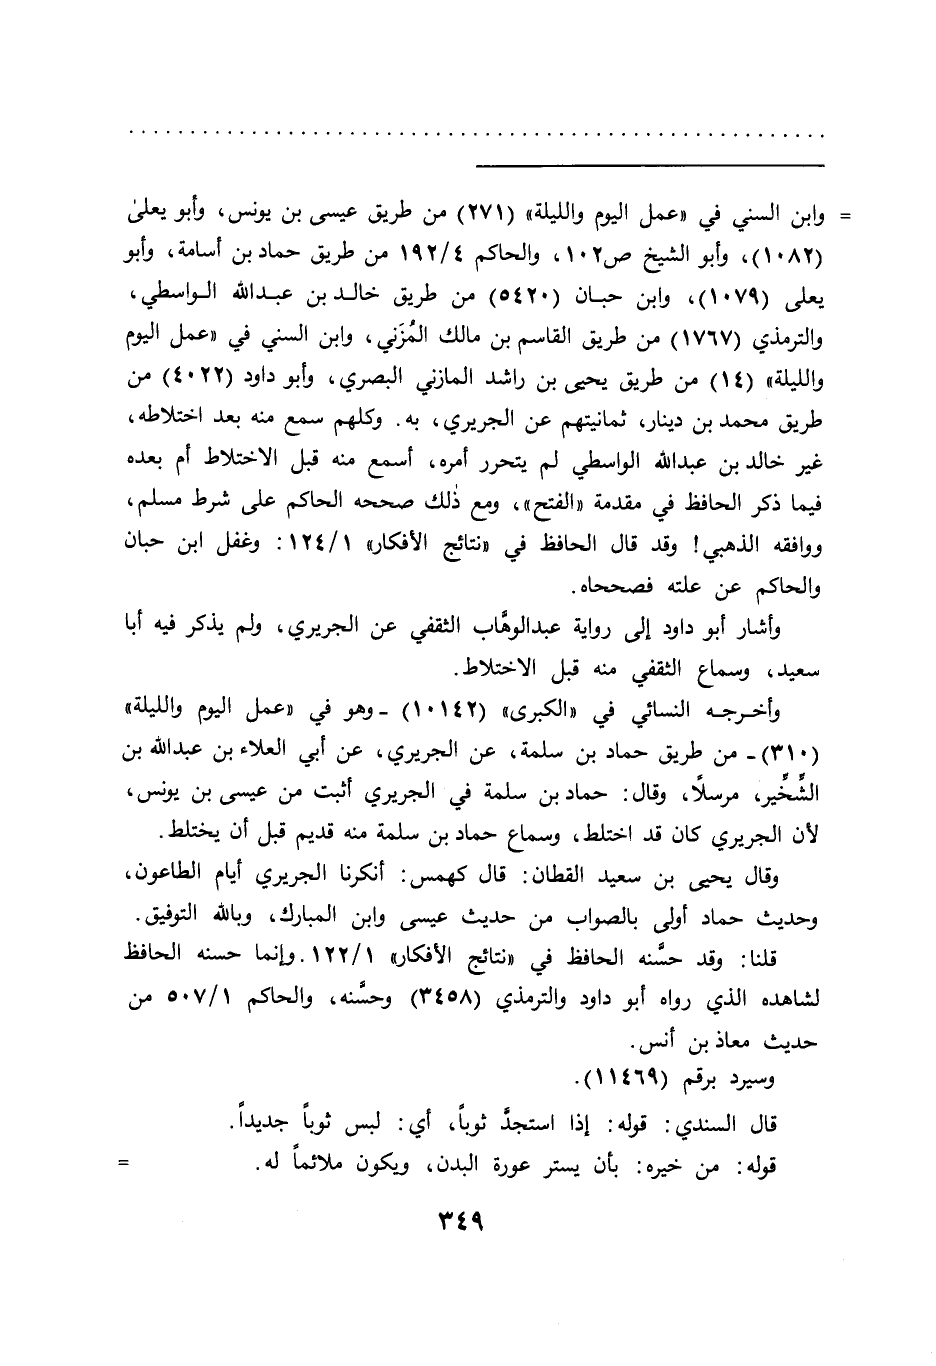 = وابن السني في «عمل اليوم والليلة» (٢٧١) من طريق عيسى بن يونس، وأبو يعلىٰ
(١٠٨٢)، وأبو الشيخ ص١٠٢، والحاكم ١٩٢/٤ من طريق حماد بن أسامة، وأبو
يعلى (١٠٧٩)، وابن حبان (٥٤٢٠) من طريق خالد بن عبدالله الواسطي،
والترمذي (١٧٦٧) من طريق القاسم بن مالك المُزَني، وابن السني في «عمل اليوم
والليلة» (١٤) من طريق يحيى بن راشد المازني البصري، وأبو داود (٤٠٢٢) من
طريق محمد بن دينار، ثمانيتهم عن الجريري، به. وكلهم سمع منه بعد اختلاطه،
غير خالد بن عبدالله الواسطي لم يتحرر أمره، أسمع منه قبل الاختلاط أم بعده
فيما ذكر الحافظ في مقدمة «الفتح»، ومع ذٰلك صححه الحاكم على شرط مسلم،
ووافقه الذهبي! وقد قال الحافظ في «نتائج الأفكار» ١٢٤/١: وغفل ابن حبان
والحاكم عن علته فصححاه.
وأشار أبو داود إلى رواية عبدالوهَّاب الثقفي عن الجريري، ولم يذكر فيه أبا
سعيد، وسماع الثقفي منه قبل الاختلاط.
وأخرجه النسائي في «الكبرى» (١٠١٤٢) -وهو في «عمل اليوم والليلة»
(٣١٠)- من طريق حماد بن سلمة، عن الجريري، عن أبي العلاء بن عبدالله بن
الشِّخِّير، مرسلاً، وقال: حماد بن سلمة في الجريري أثبت من عيسى بن يونس،
لأن الجريري كان قد اختلط، وسماع حماد بن سلمة منه قديم قبل أن يختلط.
وقال يحيى بن سعيد القطان: قال كهمس: أنكرنا الجريري أيام الطاعون،
وحديث حماد أولى بالصواب من حديث عيسى وابن المبارك، وبالله التوفيق.
قلنا: وقد حسَّنه الحافظ في «نتائج الأفكار» ١٢٢/١. وإنما حسنه الحافظ
لشاهده الذي رواه أبو داود والترمذي (٣٤٥٨) وحسَّنه، والحاكم ٥٠٧/١ من
حديث معاذ بن أنس.
وسيرد برقم (١١٤٦٩).
قال السندي: قوله: إذا استجدَّ ثوباً، أي: لبس ثوباً جديداً.
قوله: من خيره: بأن يستر عورة البدن، ويكون ملائماً له. =
٣٤٩